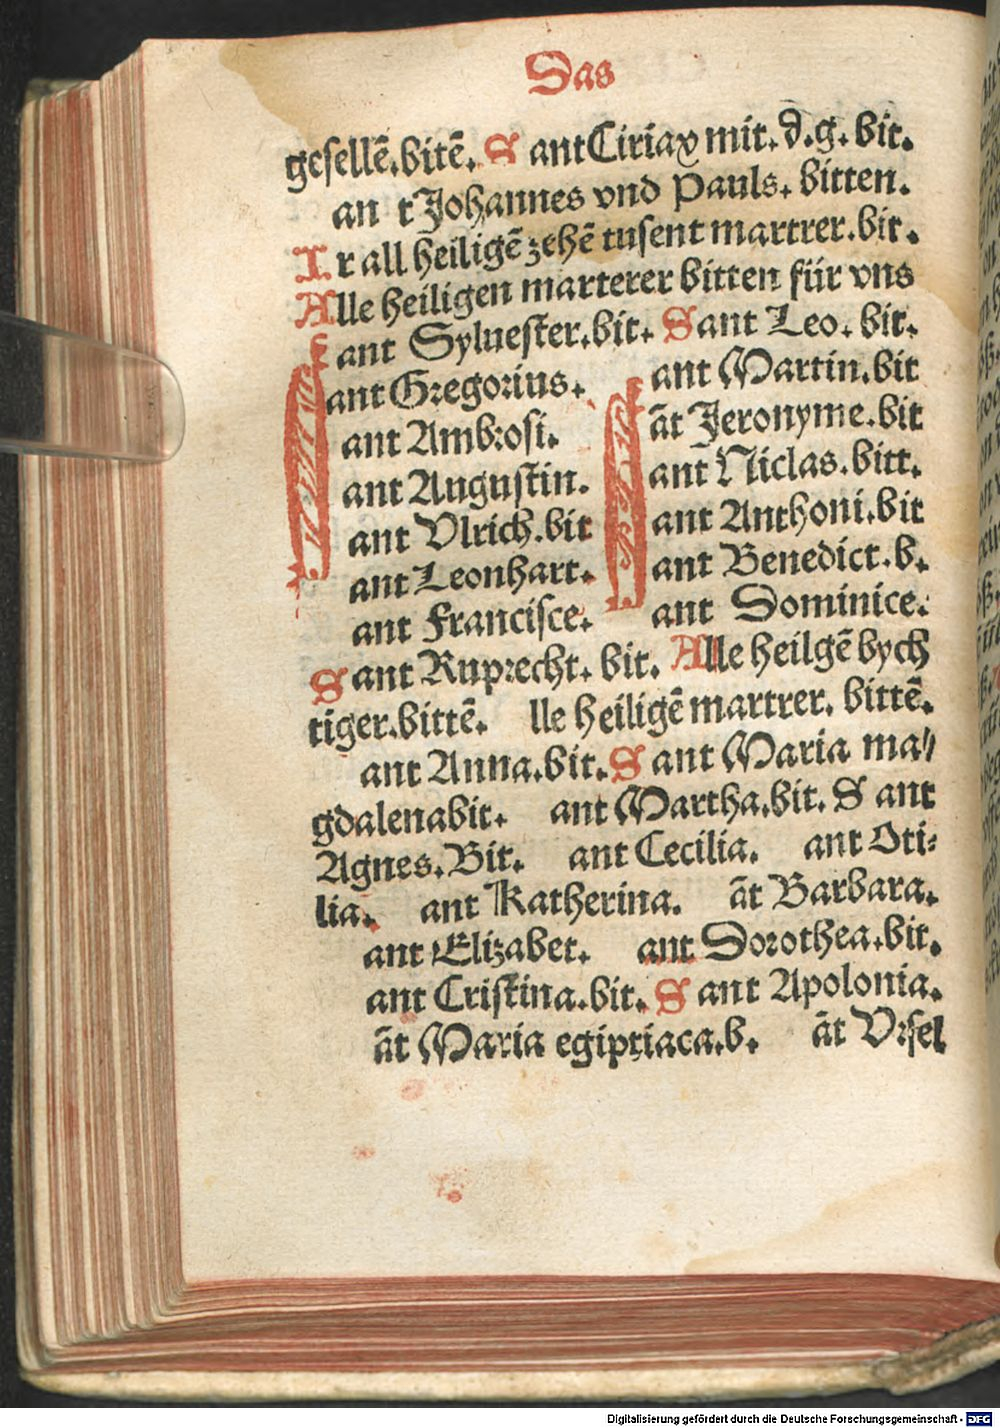 Das
gesellē.bitē. S antCiriax mit.d.g.bit.
an tJohannes vnd Pauls. bitten.
Ir all heiligē zehē tusent martrer.bit.
Alle heiligen marterer bitten für vns
ant Syluester.bit. Sant Leo. bit.
ant Gregorius. ant Martin.bit
ant Ambrosi. āt Jeronyme.bit
ant Augustin. ant Niclas.bitt.
ant Vlrich.bit ant Anthoni.bit
ant Leonhart. ant Benedict.b.
ant Francisce. ant Dominice.
Sant Ruprecht. bit. Alle heilgē bych
tiger.bittē. lle heiligē martrer. bittē.
ant Anna.bit. Sant Maria ma⸗
gdalenabit. ant Martha.bit. S ant
Agnes. Bit. ant Cecilia. ant Oti⸗
lia. ant Katherina. āt Barbara.
ant Elizabet. ant Dorothea.bit.
ant Cristina.bit. S ant Apolonia.
āt Maria egiptiaca.b. āt Vrsel
Digitalisierung gefördert durch die Deutsche Forschungsgemeinschaft - DFG